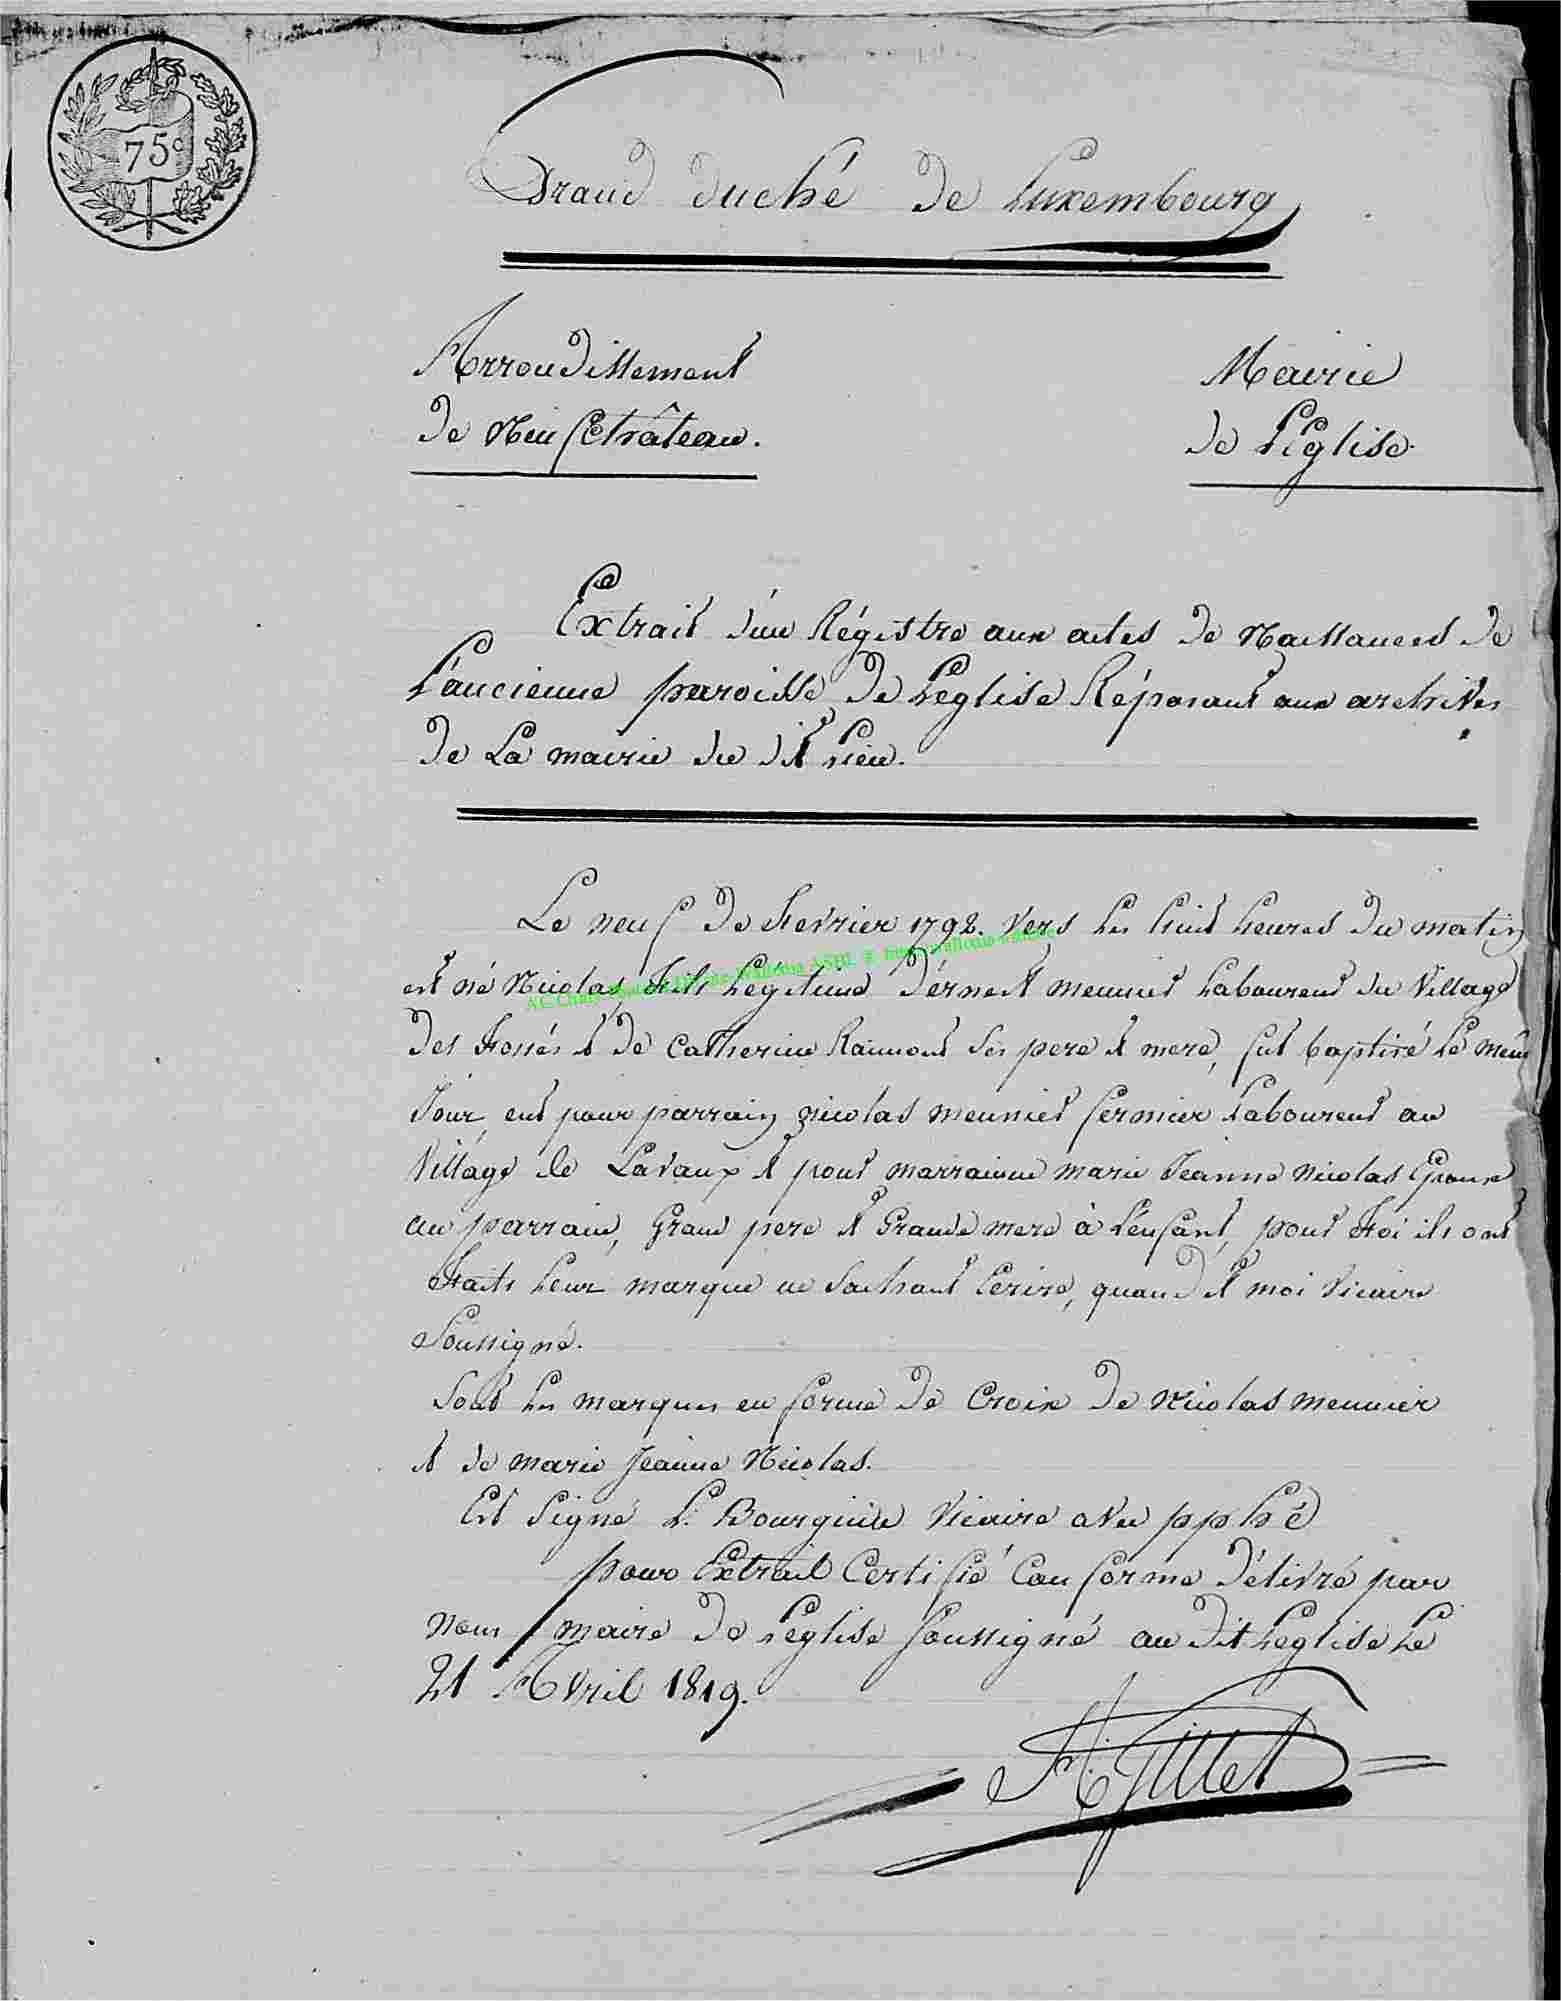 75c
Grand duché de Luxembourg
Arrondissement
de Neufchâteau.
Mairie
de Léglise.
Extrait d'un Régistre aux actes de Naissances de
L'ancienne paroisse de Léglise Réposant aux archives
de La mairie du dit Lieu.
Le neuf de Fevrier 1792. vers les huit heures du matin
est né Nicolas, Fils Légitime d'érnest meunier Laboureur du Village
des Fossés et de Catherine Raimont ses pere et mere, fut baptisé le même
Jour, eut pour parrain nicolas meunier fermier Laboureur au
Village de Lavaux et pour marrainne marie Jeanne nicolas Epouse
au parrain, Grand pere et Grande mere à L'enfant, pour Foi ils ont
Faits leur marque ne sachant Ecrire, quand et moi Vicaire
Soussigné.
sont les marques en forme de Croix de Nicolas meunier
et de marie Jeanne Nicolas.
Est Signé L. Vicaire avec pphé
pour Extrait Certifié Conforme Délivré par
nous maire de Léglise soussigné au dit Léglise Le
21 Avril 1819.
H. Gillet